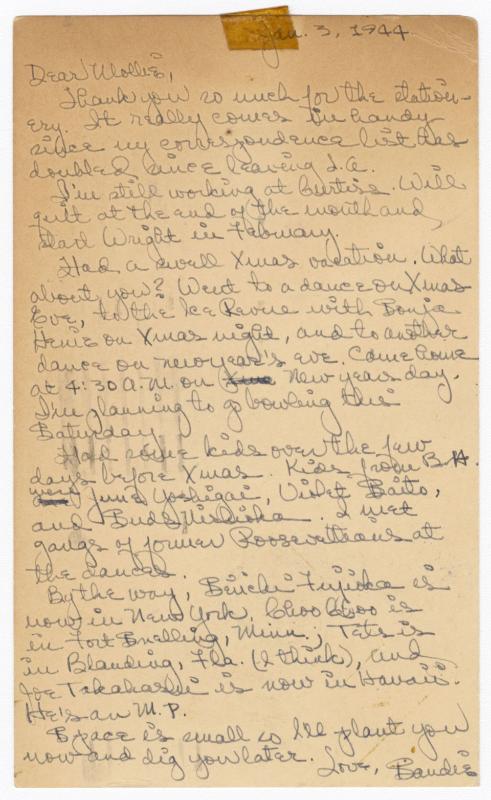 Jan. 3, 1944
Dear Mollie,
Thank you so much for the station-
ery. It really comes in handy
since my correspondence list has
doubled since leaving L.A.
I'm still working at Curtiss. Will
quit at the end of the month and
start Wright in February.
Had a swell Xmas vacation. What
about you? Went to a dance on Xmas
Eve, to the Ice Revue with Sonja
Henie on Xmas night, and to another
dance on new year's eve. Came home
at 4:30 A.M. on New years day.
I'm planning to go bowling this
Saturday.
Had some kids over the few
days before Xmas. Kids from B.H.
were June Yoshigai, Violet Saito,
and Buds Nishioka. I met
gangs of former Rooseveltians at
the dances.
By the way, Seiichi Fujioka is
now in New York, Choo Choo is
in Fort Snelling, Minn.; Tets is
in Blanding, Fla. (I think), and
Joe Takahashi is now in Hawaii.
He's an M.P.
Space is small so I'll plant you
now and dig you later.
Love, Sandie